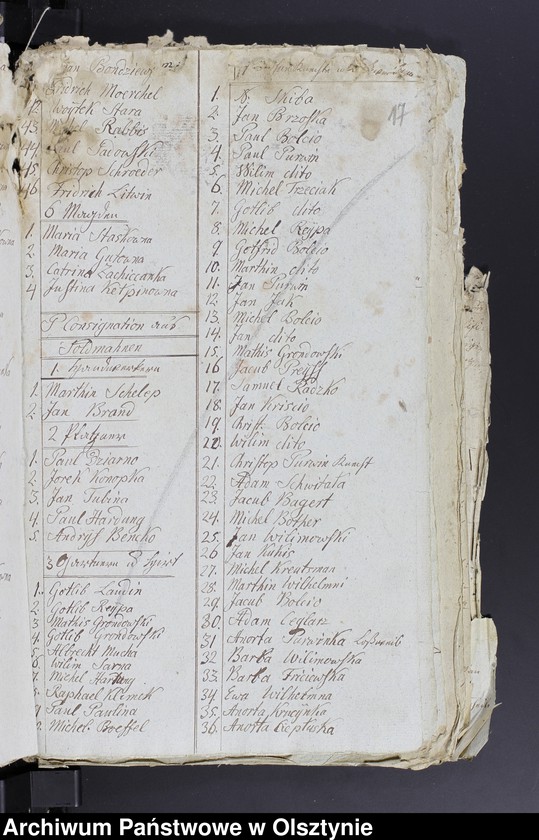 Jan Bondziewz
Fridrich Moerchel
Woytek Stara
43 Michel Rabbis
44 Paul Sadowski
45 Christop Schroeder
46 Fridrich Litwin
6 Mägden
1. Maria Staskowna
2 Maria Gutowna
3. Catrina Zachiecanka
4 Justina Kettpinowna
P Consignation
Foldmahnen
1.
1. Marthin Schelep
2. Jan Brand
2
1. Paul Dziarno
2. Jorek Konopka
3. Jan Tubina
4. Paul Hardung
5. Andrys Bencko
3 Gartnern
1. Gotlib Landin
2. Gotlib Reypa
3 Mathis Grondowski
4 Gotlib Grondowski
5 Albrecht Mucha
6 Wilim Sarna
7 Michel Hartung
Raphael Klimek
9 Paul Paulina
Michel Boeffel
17
1. Skiba
2. Jan Brzoska
3. Paul Bolcio
4. Paul Purwin
5. Wilim dito
6. Michel Trzeciak
7. Gotlib dito
8. Michel Reypa
9. Gotfrid Bolcio
10. Marthin dito
11. Jan Purwin
12. Jan Zak
13. Michel Bolcio
14. Jan dito
15. Mathis Grondowski
16 Jacub Preyss
17. Samuel Radzko
18. Jan Kriscio
19. Christ. Bolcio
20. Wilim dito
21. Christop Purwin
22. Adam Schwitala
23. Jacub Bagert
24. Michel Bother
25. Jan Wilimowski
26 Jan Kukis
27. Michel Kreutzman
28. Marthin Wilhelmni
29. Jacub Bolcio
30. Adam Ceglarz
31 Anorta Purwinka
32 Barba Wilimowska
33. Barba Friecwska
34 Ewa Wilhelmna
35. Anorta
36. Anorta
Archiwum Państwowe w Olsztynie